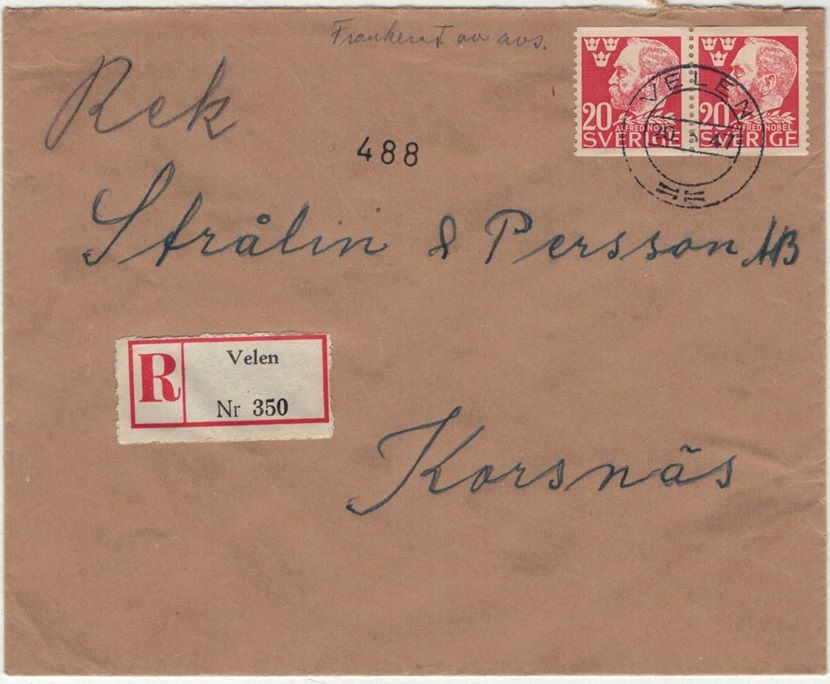 Frankerat av avs.
Rek
20
ALFRED NOBEL
SVERIGE
20
ALFRED NOBEL
SVERIGE
VELEN
47
488
Strålin & Persson AB
R
Velen
Nr 350
Korsnäs